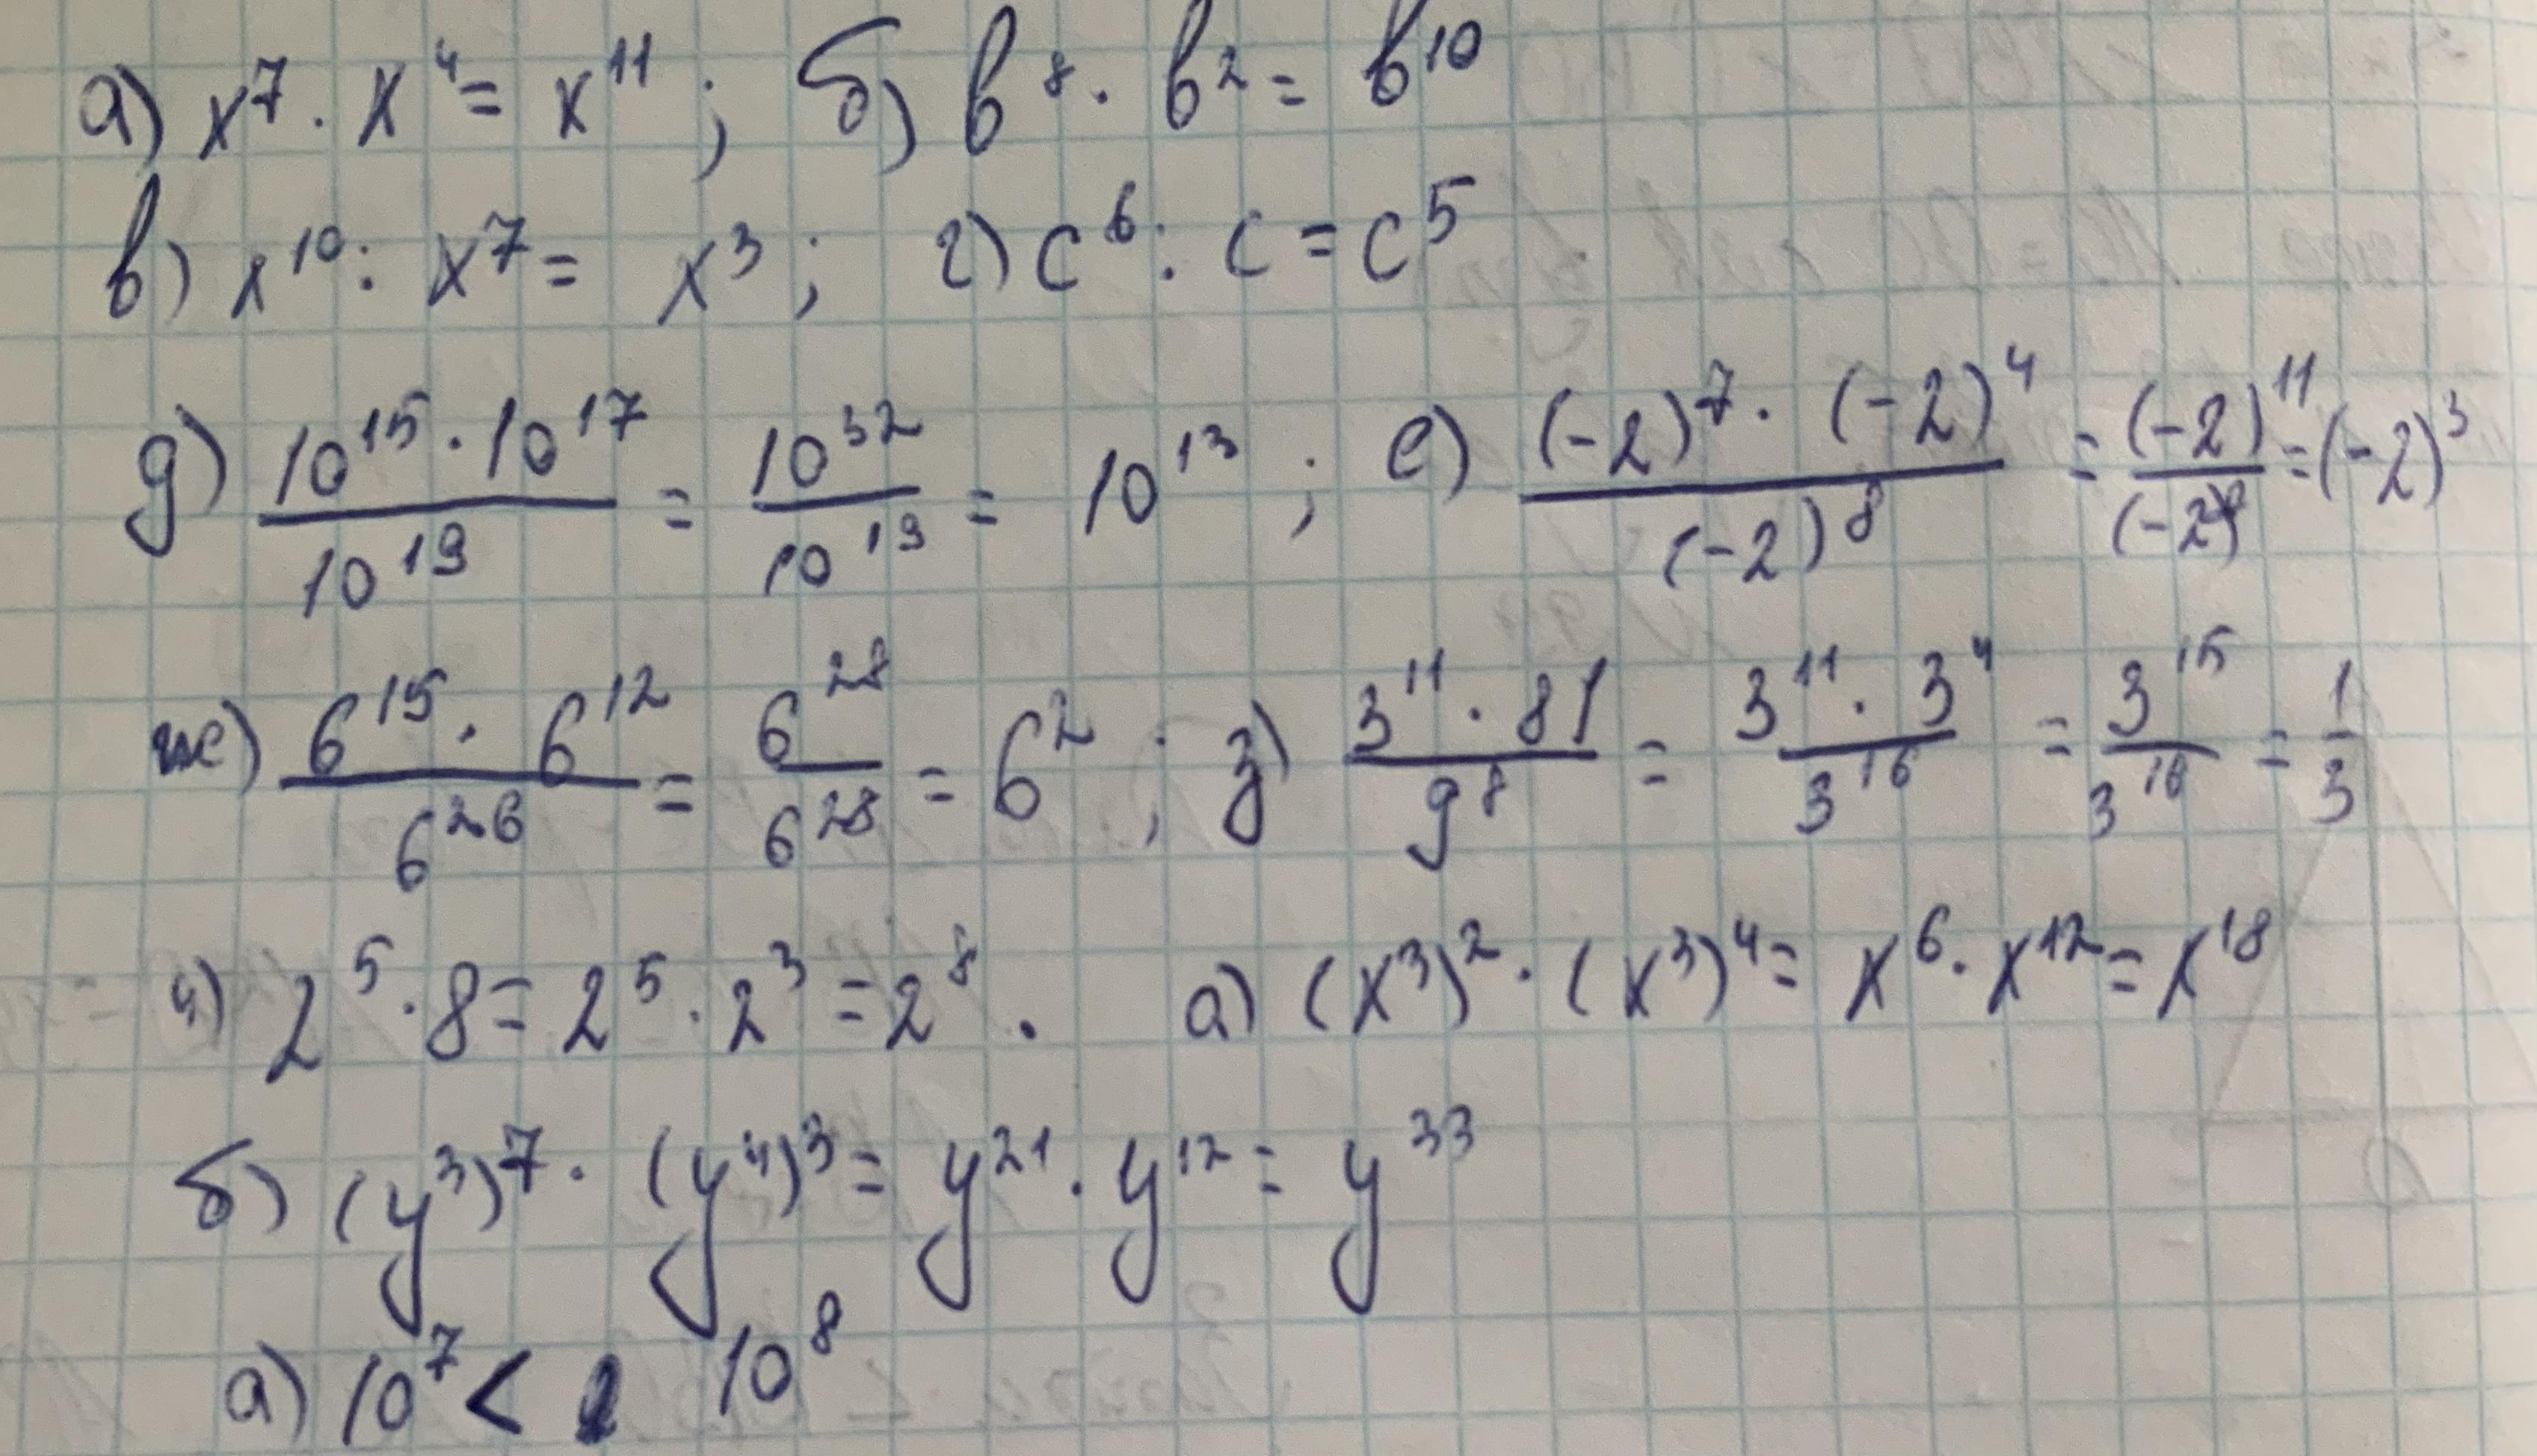 а) x⁷ · x⁴ = x¹¹ ; б) b⁸ · b² = b¹⁰
в) x¹⁰ : x⁷ = x³ ; г) c⁶ : c = c⁵
д) (10¹⁵ · 10¹⁷)/10¹⁹ = 10³²/10¹⁹ = 10¹³ ; е) ((-2)⁷ · (-2)⁴)/(-2)⁸ = (-2)¹¹/(-2)⁸ = (-2)³
ж) (6¹⁵ · 6¹²)/6²⁶ = 6²⁸/6²⁸ = 6² ; з) (3¹¹ · 81)/9⁸ = (3¹¹ · 3⁴)/3¹⁶ = 3¹⁵/3¹⁶ = 1/3
и) 2⁵ · 8 = 2⁵ · 2³ = 2⁸ . а) (x³)² · (x³)⁴ = x⁶ · x¹² = x¹⁸
б) (y³)⁷ · (y⁴)³ = y²¹ · y¹² = y³³
а) 10⁷ < 10⁸